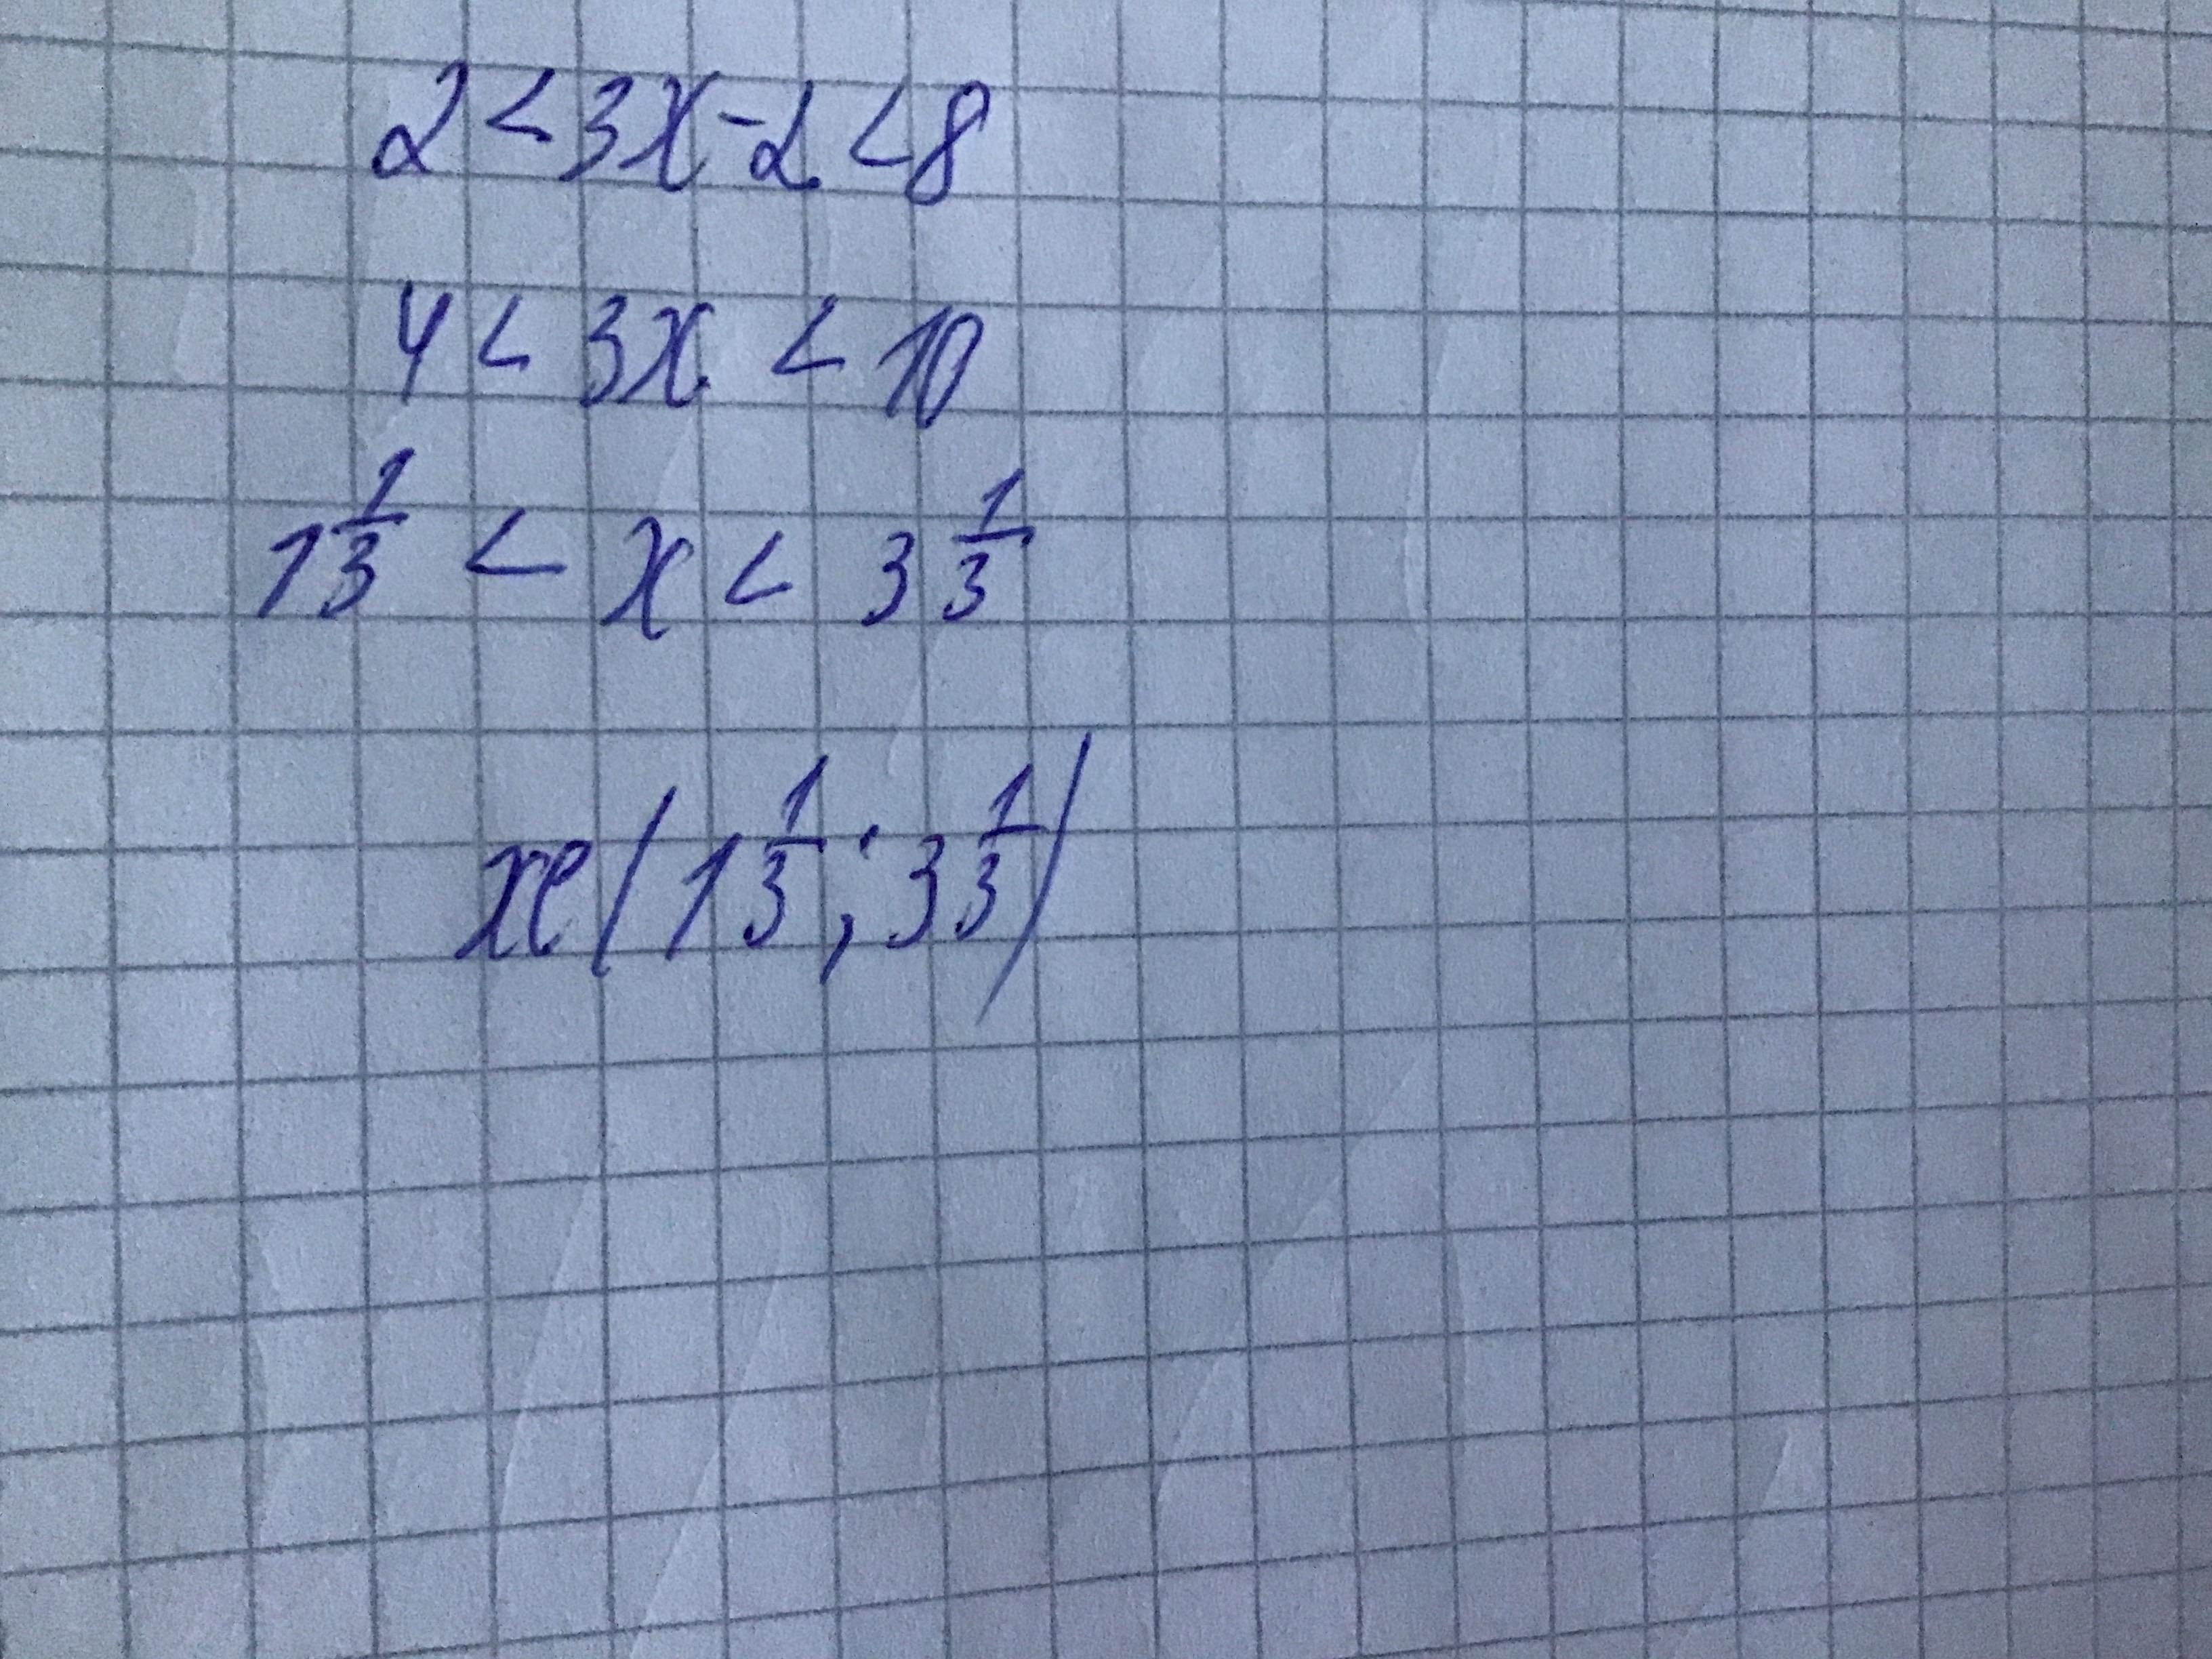 2 < 3x - 2 < 8
4 < 3x < 10
1 1/3 < x < 3 1/3
x∈(1 1/3; 3 1/3)